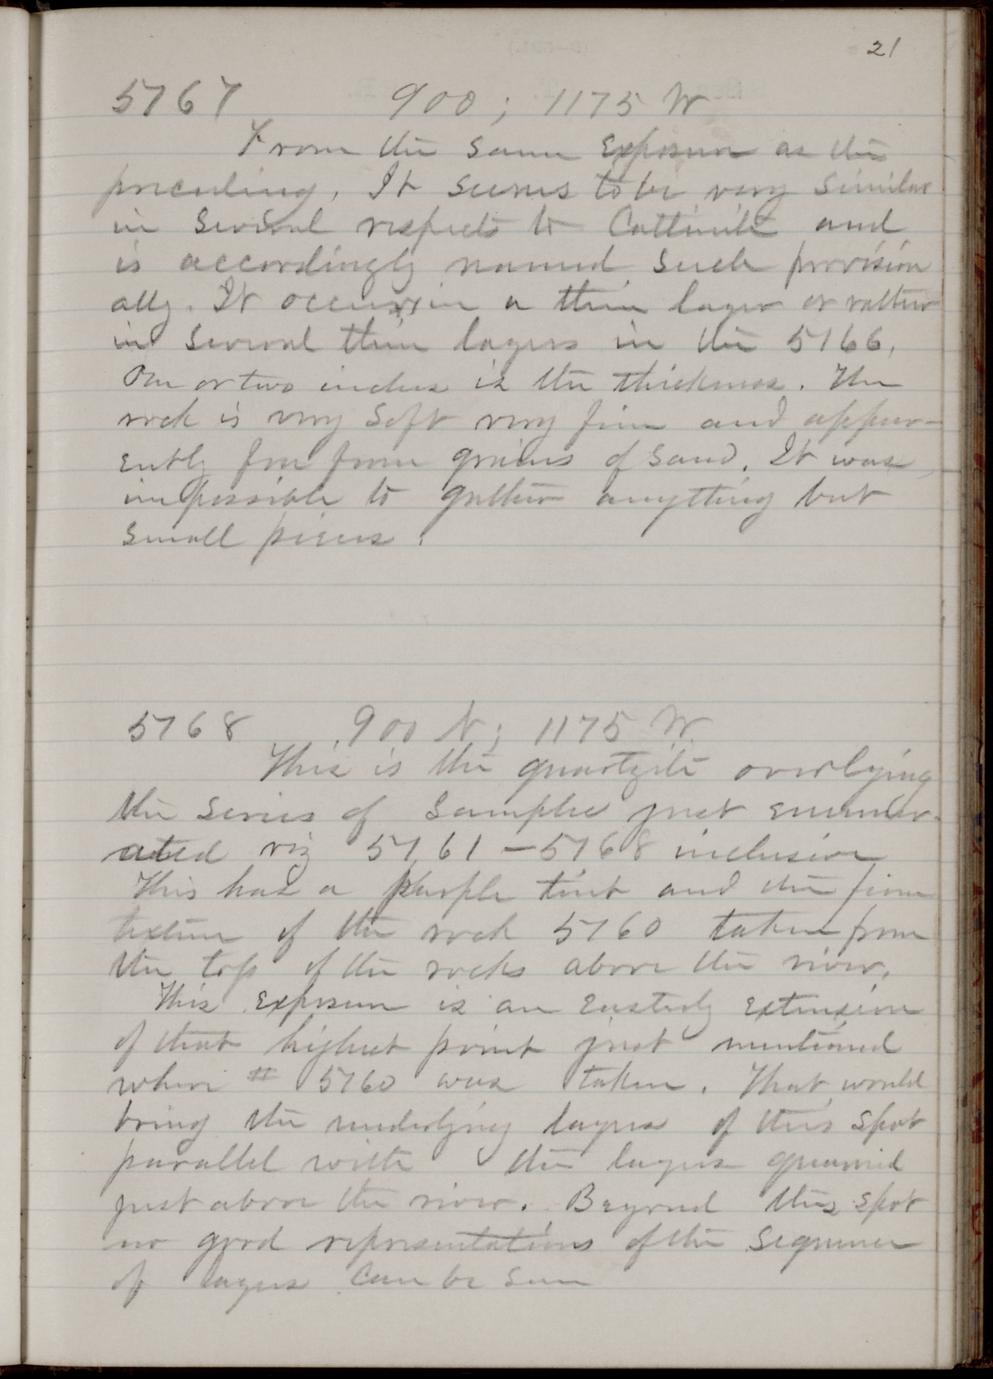 21
5767 900 ; 1175 W
From the same exposure as the
preceding. It seems to be very similar
in several respects to Catlinite and
is accordingly named such provision
ally. It occurs in a thin layer or rather
in several thin layers in the 5766.
One or two inches is the thickness. The
rock is very soft very fine and appar-
ently free from grains of sand. It was
impossible to gather anything but
small pieces.
5768 900 N; 1175 W.
This is the quartzite overlying
the series of samples just enumer-
ated viz 5761 - 5768 inclusive
This has a purple tint and the fine
texture of the rock 5760 taken from
the top of the rocks above the river.
This exposure is an easterly extension
of that highest point just mentioned
where # 5760 was taken. That would
bring the underlying layers of this spot
parallel with the layers quarried
just above the river. Beyond this spot
no good representations of the sequence
of layers can be seen